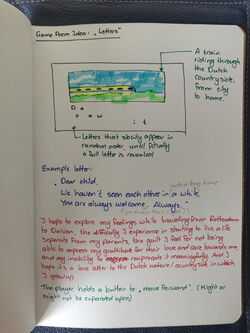 Game Poem Idea: "Letters"
A train
riding through
the Dutch
countryside,
from city
to home.
D a
o a w
i t
Letters that slowly appear in
random order until finally
a full letter is revealed!
Example letter:
Dear child,
We haven't seen each other in a while.
You are always welcome. Always."
I hope to explore my feelings while traveling from Rotterdam
to Duiven, the difficulty I experience in starting to live a life
separate from my parents, the guilt I feel for not being
able to express my gratitude for their love and care towards me
and my inability to reciprocate it meaningfully. And I
hope it's a love letter to the Dutch nature / countryside in which
I grew up.
The player holds a button to "move forward". (Might or
might not be expanded upon)